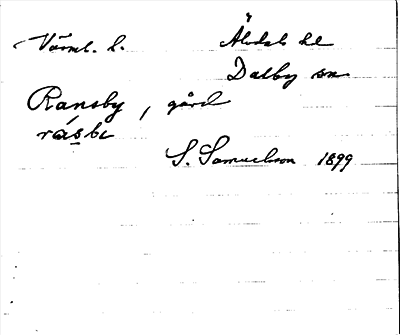 Värml. l. Älvdals hd
Dalby sn
Ransby, gård
råsbı
S. Samuelsson 1899